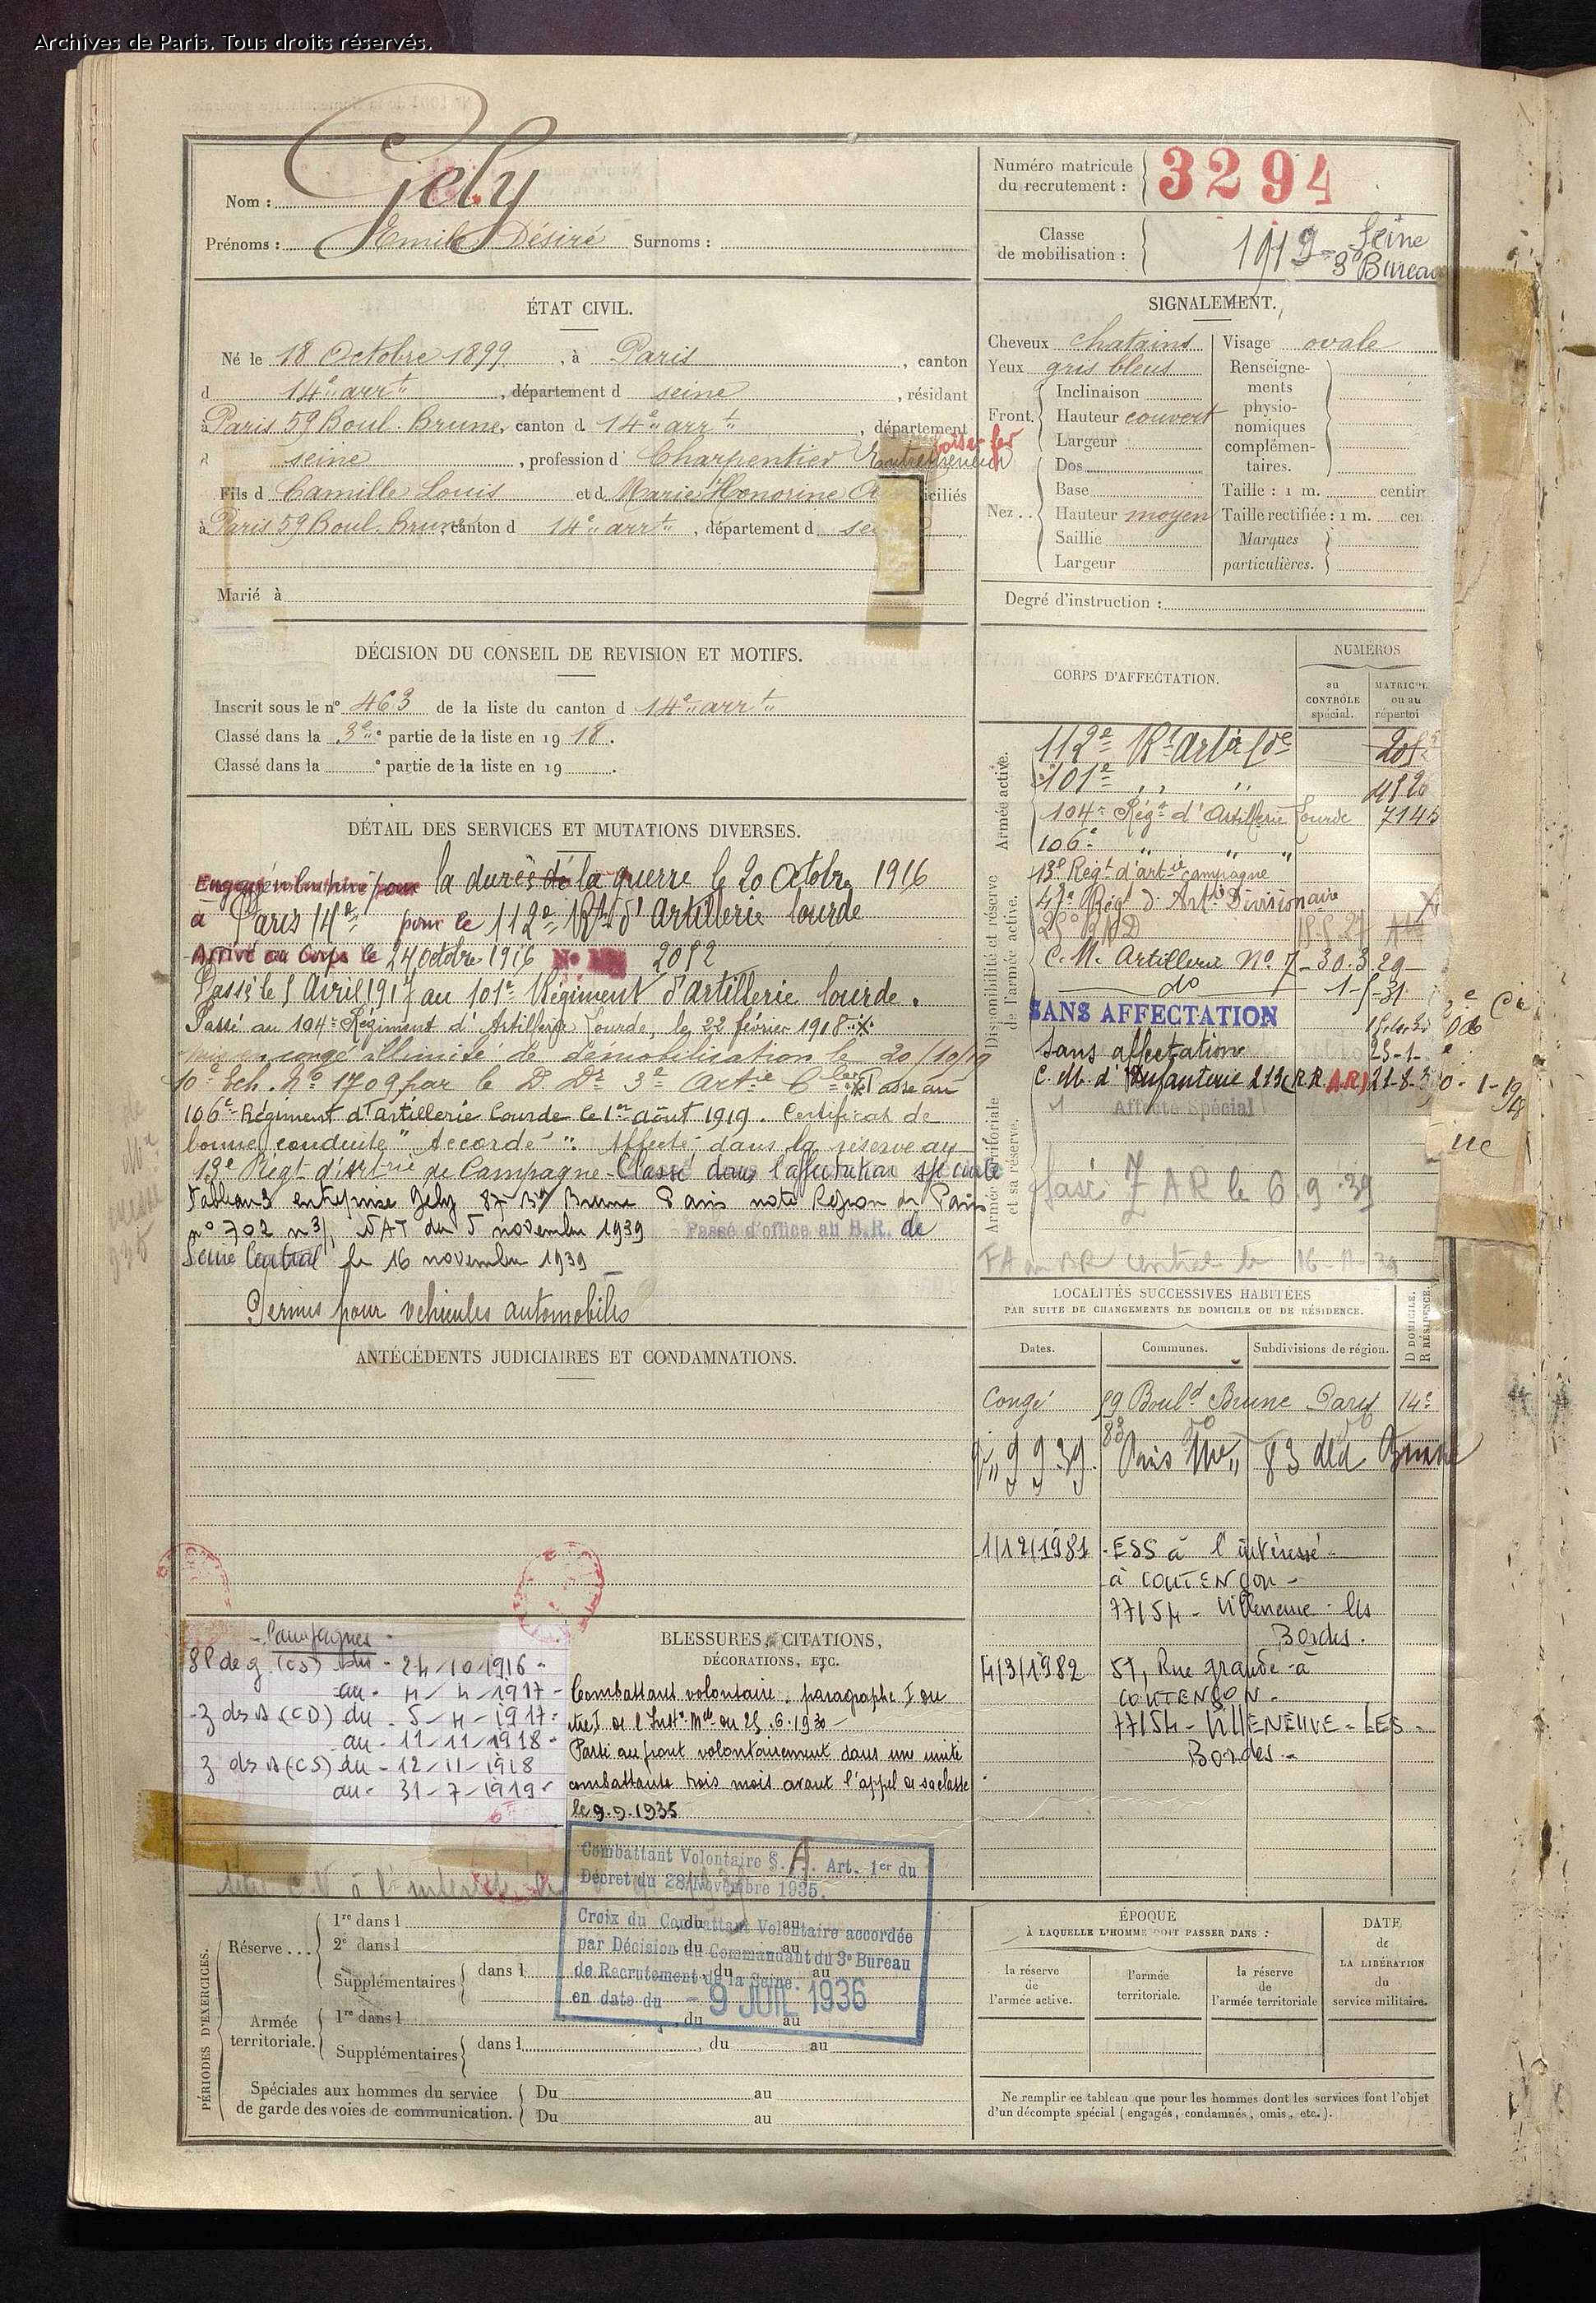 Archives de Paris. Tous droits réservés.
Nom : Gély
Prénoms : Emile Désiré Surnoms :
Numéro matricule du recrutement : 3294
Classe de mobilisation : 1919 - Seine 3e Bureau
ÉTAT CIVIL.
Né le 18 Octobre 1899, à Paris, canton
d 14e arrt, département d seine, résidant
à Paris 59 Boul. Brune, canton d 14e arrt, département
d seine, profession d Charpentier Entrepreneur
Fils d Camille Louis et d Marie Honorine
à Paris 59 Boul. Brune, canton d 14e arrt, département d
Marié à
SIGNALEMENT.
Cheveux chatains
Yeux gris bleus
Front. Inclinaison
Hauteur couvert
Largeur
Nez .. Dos
Base
Hauteur moyen
Saillie
Largeur
Visage ovale
Renseigne-
ments
physio-
nomiques
complémen-
taires.
Taille : 1 m. centim
Taille rectifiée : 1 m. cen
Marques
particulières.
Degré d'instruction :
DÉCISION DU CONSEIL DE REVISION ET MOTIFS.
Inscrit sous le n° 463 de la liste du canton d 14e arrt
Classé dans la 3e partie de la liste en 1918.
Classé dans la e partie de la liste en 19 .
DÉTAIL DES SERVICES ET MUTATIONS DIVERSES.
Engagé volontaire pour la durée de la guerre le 20 Octobre 1916
à Paris 14e pour le 112e Rt d'Artillerie lourde
Arrivé au Corps le 24 octobre 1916 No 2052
Passé le 5 Avril 1917 au 101e Régiment d'artillerie lourde.
Passé au 104e Régiment d'Artillerie Lourde, le 22 février 1918
Mis en congé illimité de démobilisation le 20/10/19
10e Ech. No 1709 par le D. Dr 3e Artie Passé au
106e Régiment d'artillerie Lourde le 1er août 1919. Certificat de
bonne conduite "Accordé". Affecté dans la réserve au
13e Régt d'Artrie de Campagne - Classé dans l'affectation spéciale
Tableau 3 entreprise Gely 87 Bd Brune Paris note Région de Paris
n° 702 n 3/ SAT du 5 novembre 1939 Passé d'office au B.R. de
Seine Central le 16 novembre 1939
Permis pour vehicules automobiles
CORPS D'AFFECTATION.
NUMÉROS
au CONTRÔLE spécial.
MATRICUL ou au répertoi
Armée active.
112e Rt Artie Lde 2052
101e " " 4820
104e Régt d'Artillerie Lourde 7145
106e " " "
Disponibilité et réserve de l'armée active.
13e Régt d'artie campagne
43e Régt d'Artie Divisionaire
C. M. Artillerie No. 7 - 30.3.29
do 1-5-31
SANS AFFECTATION
Sans affectation 25-1-
C. M. d'Infanterie 213 (R.R. A.R) 21-8-3
Affecté Spécial
Armée territoriale et sa réserve.
Z AR le 6.9.39
central le 16-11-39
ANTÉCÉDENTS JUDICIAIRES ET CONDAMNATIONS.
LOCALITÉS SUCCESSIVES HABITÉES
PAR SUITE DE CHANGEMENTS DE DOMICILE OU DE RÉSIDENCE.
Dates. Communes. Subdivisions de région. D DOMICILE. R RÉSIDENCE.
Congé 59 Bould Brune Paris 14e
9 9 39. Paris 83 Brune
1/12/1981 - ESS à l'intéressé -
à COUTENÇON -
77154 - Villeneuve - les
Bordes.
4/3/1982 51, Rue grande à
COUTENÇON -
77154 - VILLENEUVE - LES -
Bordes -
- Campagnes -
Sl de g. (CS) du - 24/10/1916 -
au - 4 - 4 - 1917 -
- 3 ds A (CD) du - 5 - 4 - 1917 -
au - 11-11-1918 -
3 ds A (CS) du - 12-11-1918
au - 31-7-1919 -
BLESSURES, CITATIONS,
DÉCORATIONS, ETC.
Combattant volontaire, paragraphe I du
titre I de l'Inston Mlle du 25.6.1930 -
Parti au front volontairement dans une unité
combattante trois mois avant l'appel de sa classe
le 9.9.1935
Combattant Volontaire §. A. Art. 1er du
Décret du 28 Novembre 1935.
Croix du Combattant Volontaire accordée
par Décision du Commandant du 3e Bureau
de Recrutement de la Seine.
en date du - 9 JUIL 1936
PÉRIODES D'EXERCICES.
Réserve ... 1re dans l du au
2e dans l du au
Supplémentaires dans l du au
Armée territoriale. 1re dans l , du au
Supplémentaires dans l , du au
Spéciales aux hommes du service
de garde des voies de communication. Du au
Du au
ÉPOQUE
À LAQUELLE L'HOMME DOIT PASSER DANS :
la réserve de l'armée active.
l'armée territoriale.
la réserve de l'armée territoriale
DATE de LA LIBÉRATION du service militaire.
Ne remplir ce tableau que pour les hommes dont les services font l'objet
d'un décompte spécial (engagés, condamnés, omis, etc.).